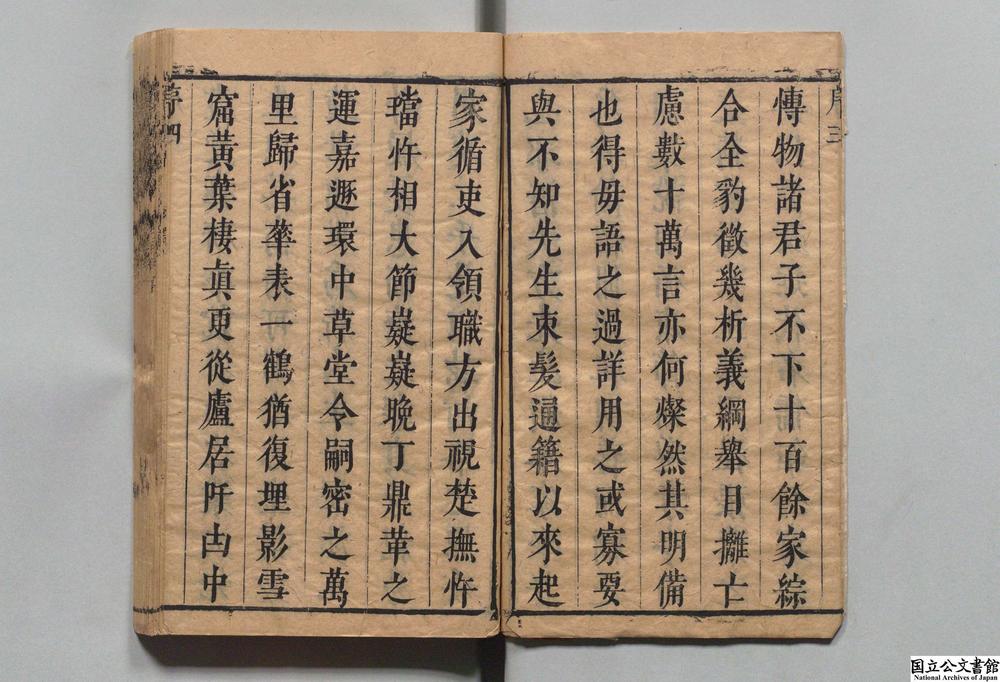 傳物諸君子不下十百餘家綜
合全豹徵幾析義綱舉目攡亡
慮數十萬言亦何燦然其明備
也得毋語之過詳用之或寡要
與不知先生束髮通籍以來起
家循吏入領職方出視楚撫忤
璫忤相大節嶷嶷晚丁鼎革之
運嘉遯環中草堂令嗣密之萬
里歸省華表一鶴猶復埋影雪
窟黃葉棲眞更從廬居阡由中
序三
序四
国立公文書館
National Archives of Japan